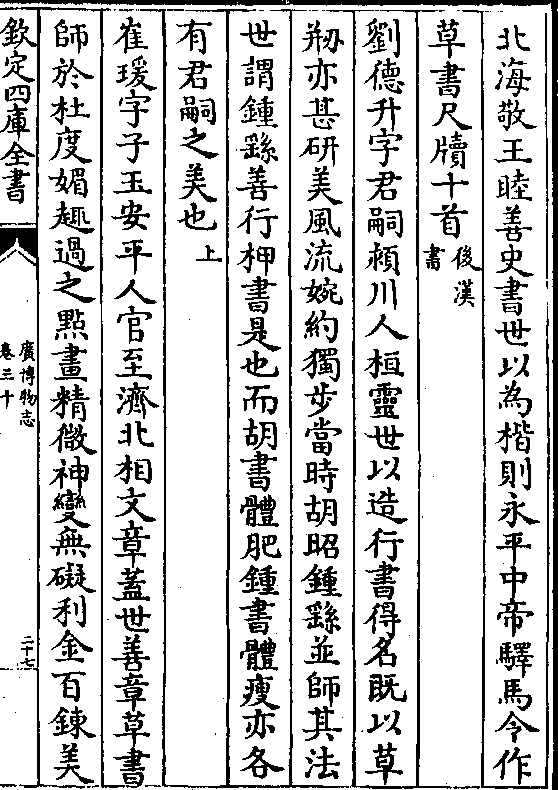 北海敬王睦善史書世以為楷則永平中帝驛馬令作
草書尺牘十首後漢書
劉德升字君嗣頴川人桓靈世以造行書得名既以草
剏亦甚硏美風流婉約獨步當時胡昭鍾繇並師其法
世謂鍾繇善行柙書是也而胡書體肥鍾書體瘦亦各
有君嗣之美也上
崔瑗字子玉安平人官至濟北相文章蓋世善章草書
師於杜度媚趣過之點畫精微神變無礙利金百鍊美
欽定四庫全書
廣博物志
卷三十
二十七